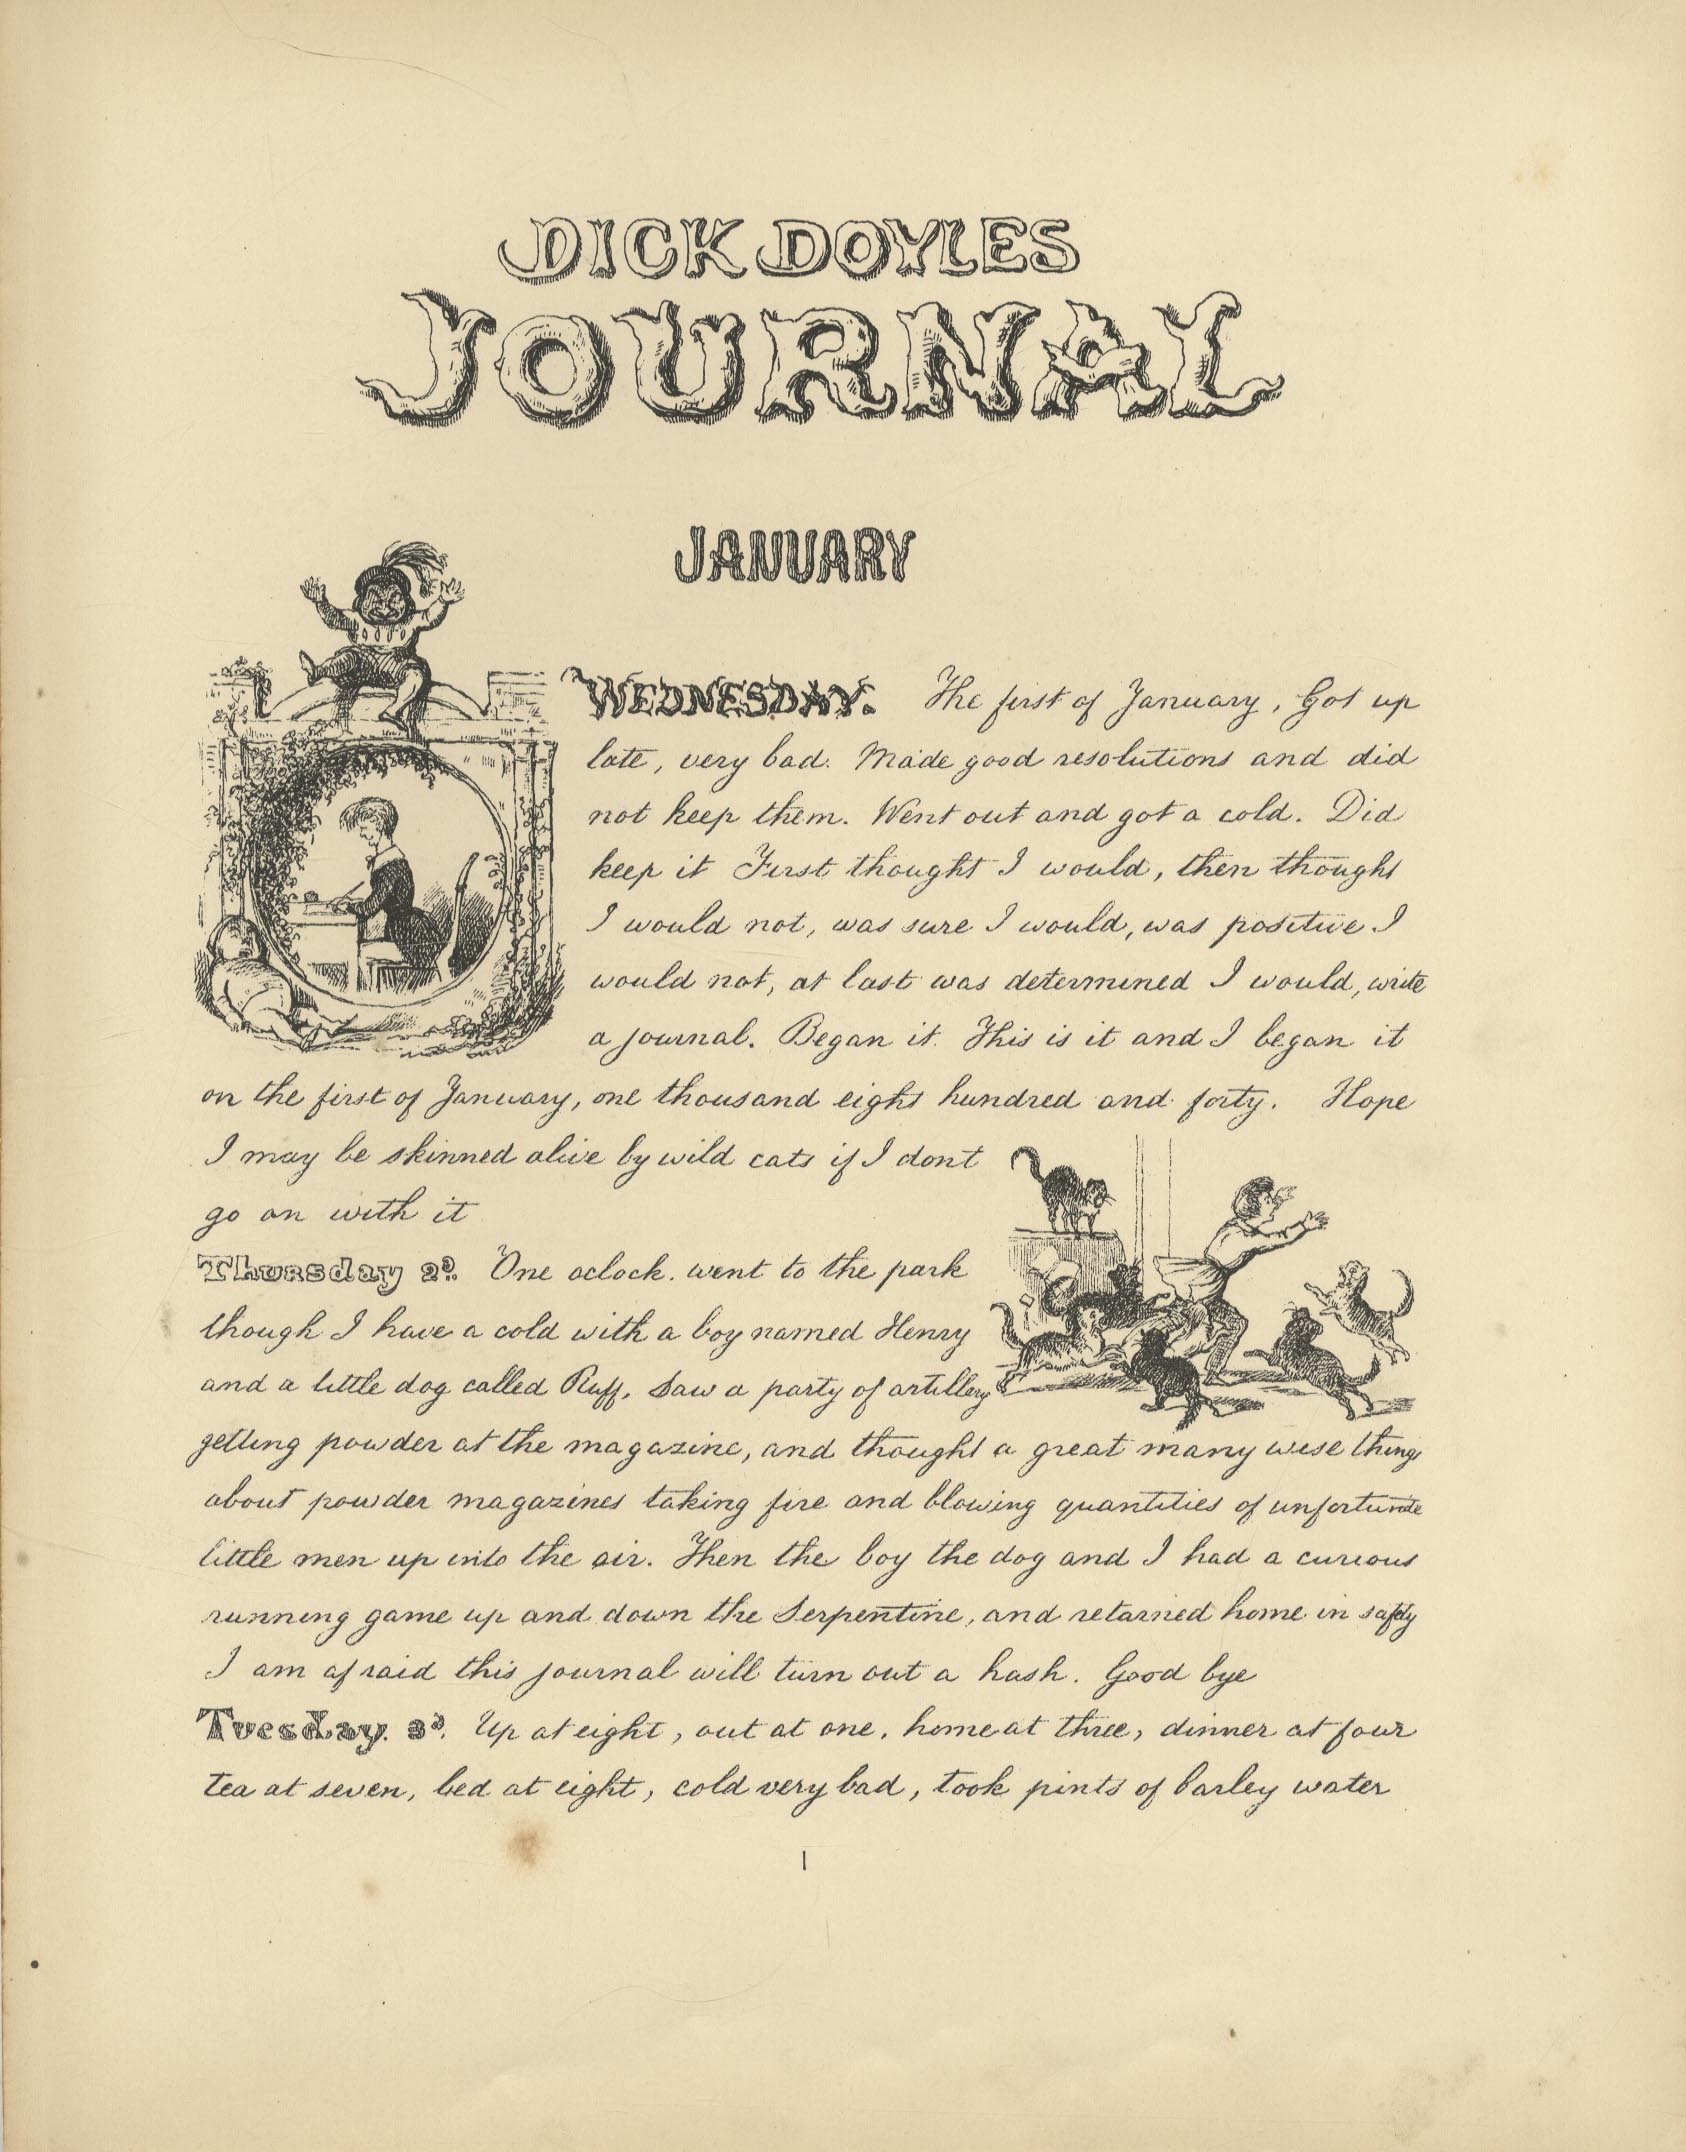 DICK DOYLES
JOURNAL
JANUARY
WEDNESDAY. The first of January, Got up
late, very bad. Made good resolutions and did
not keep them. Went out and got a cold. Did
keep it First thought I would, then thought
I would not, was sure I would, was positive I
would not, at last was determined I would, write
a journal. Began it. This is it and I began it
on the first of January, one thousand eight hundred and forty. Hope
I may be skinned alive by wild cats if I dont
go on with it
Thursday 2D. One oclock. went to the park
though I have a cold with a boy named Henry
and a little dog called Ruff. Saw a party of artillery
getting powder at the magazine, and thought a great many wise things
about powder magazines taking fire and blowing quantities of unfortunate
little men up into the air. Then the boy the dog and I had a curious
running game up and down the Serpentine, and retarned home in safety
I am afraid this journal will turn out a hash. Good bye
Tuesday. 3D. Up at eight, out at one, home at three, dinner at four
tea at seven, bed at eight, cold very bad, took pints of barley water
1